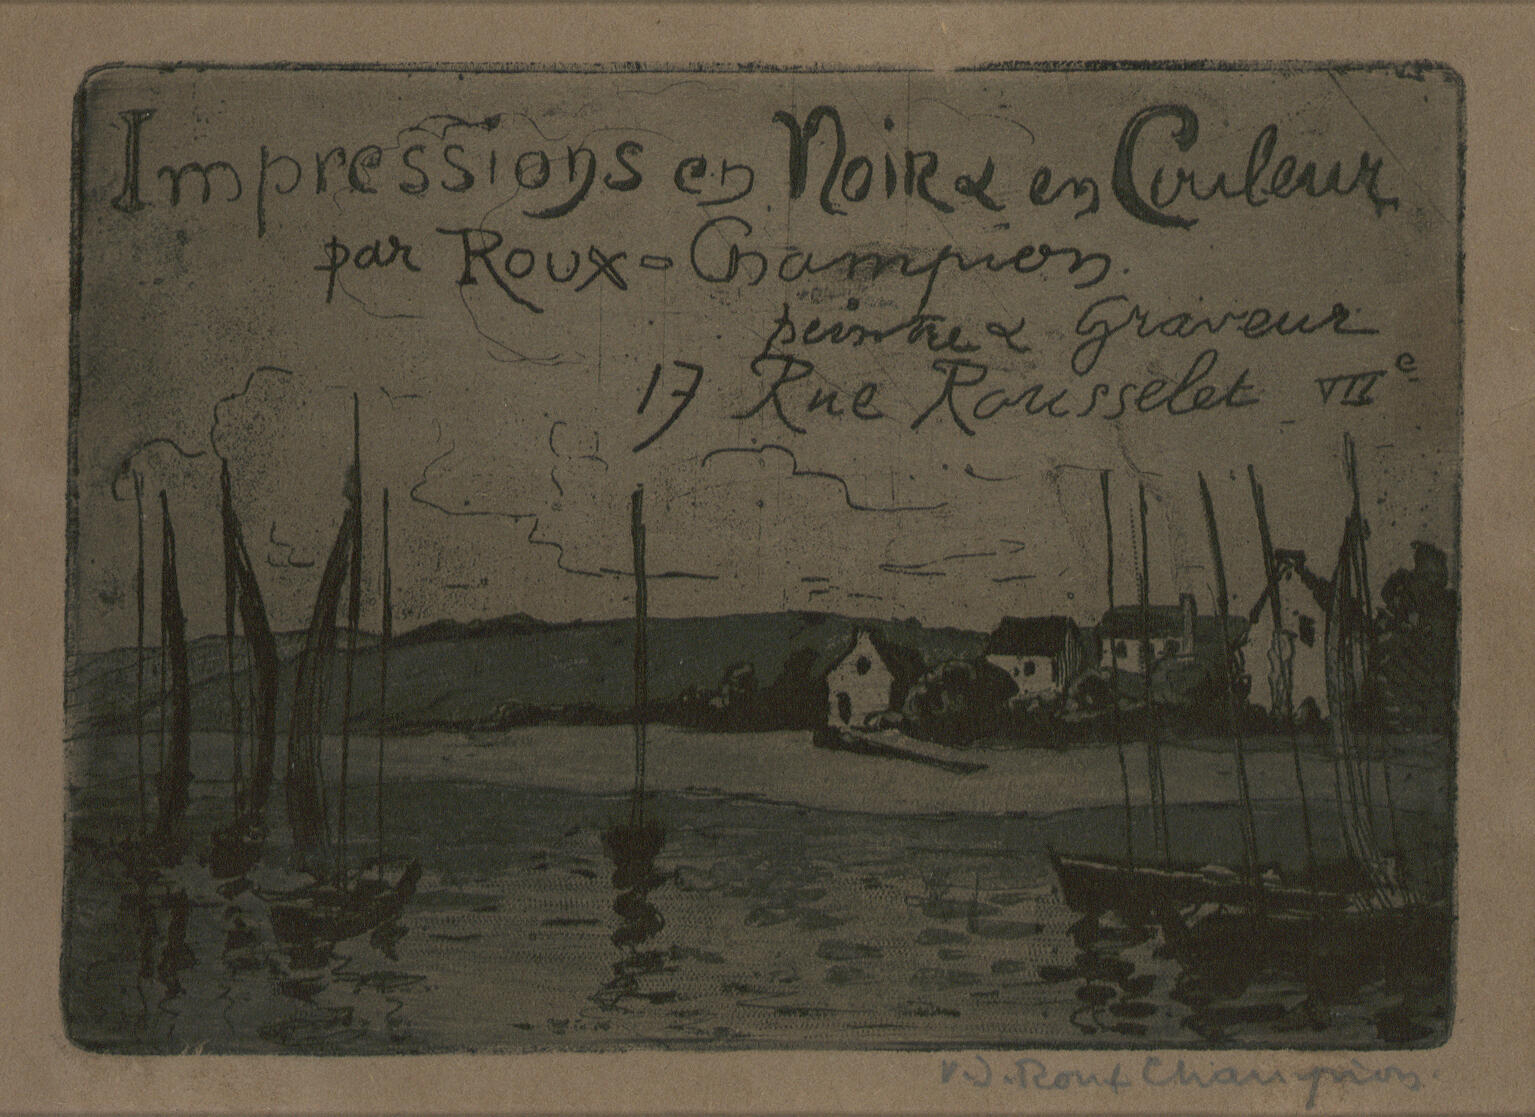 Impressions en Noir & en Couleur
par Roux-Champion.
peintre & Graveur
17 Rue Rousselet VIIe
V.J. Roux Champion.